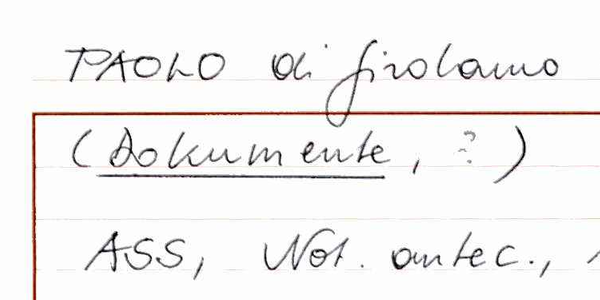 PAOLO di girolamo
(Dokumente, ?)
ASS, Not. antec.,